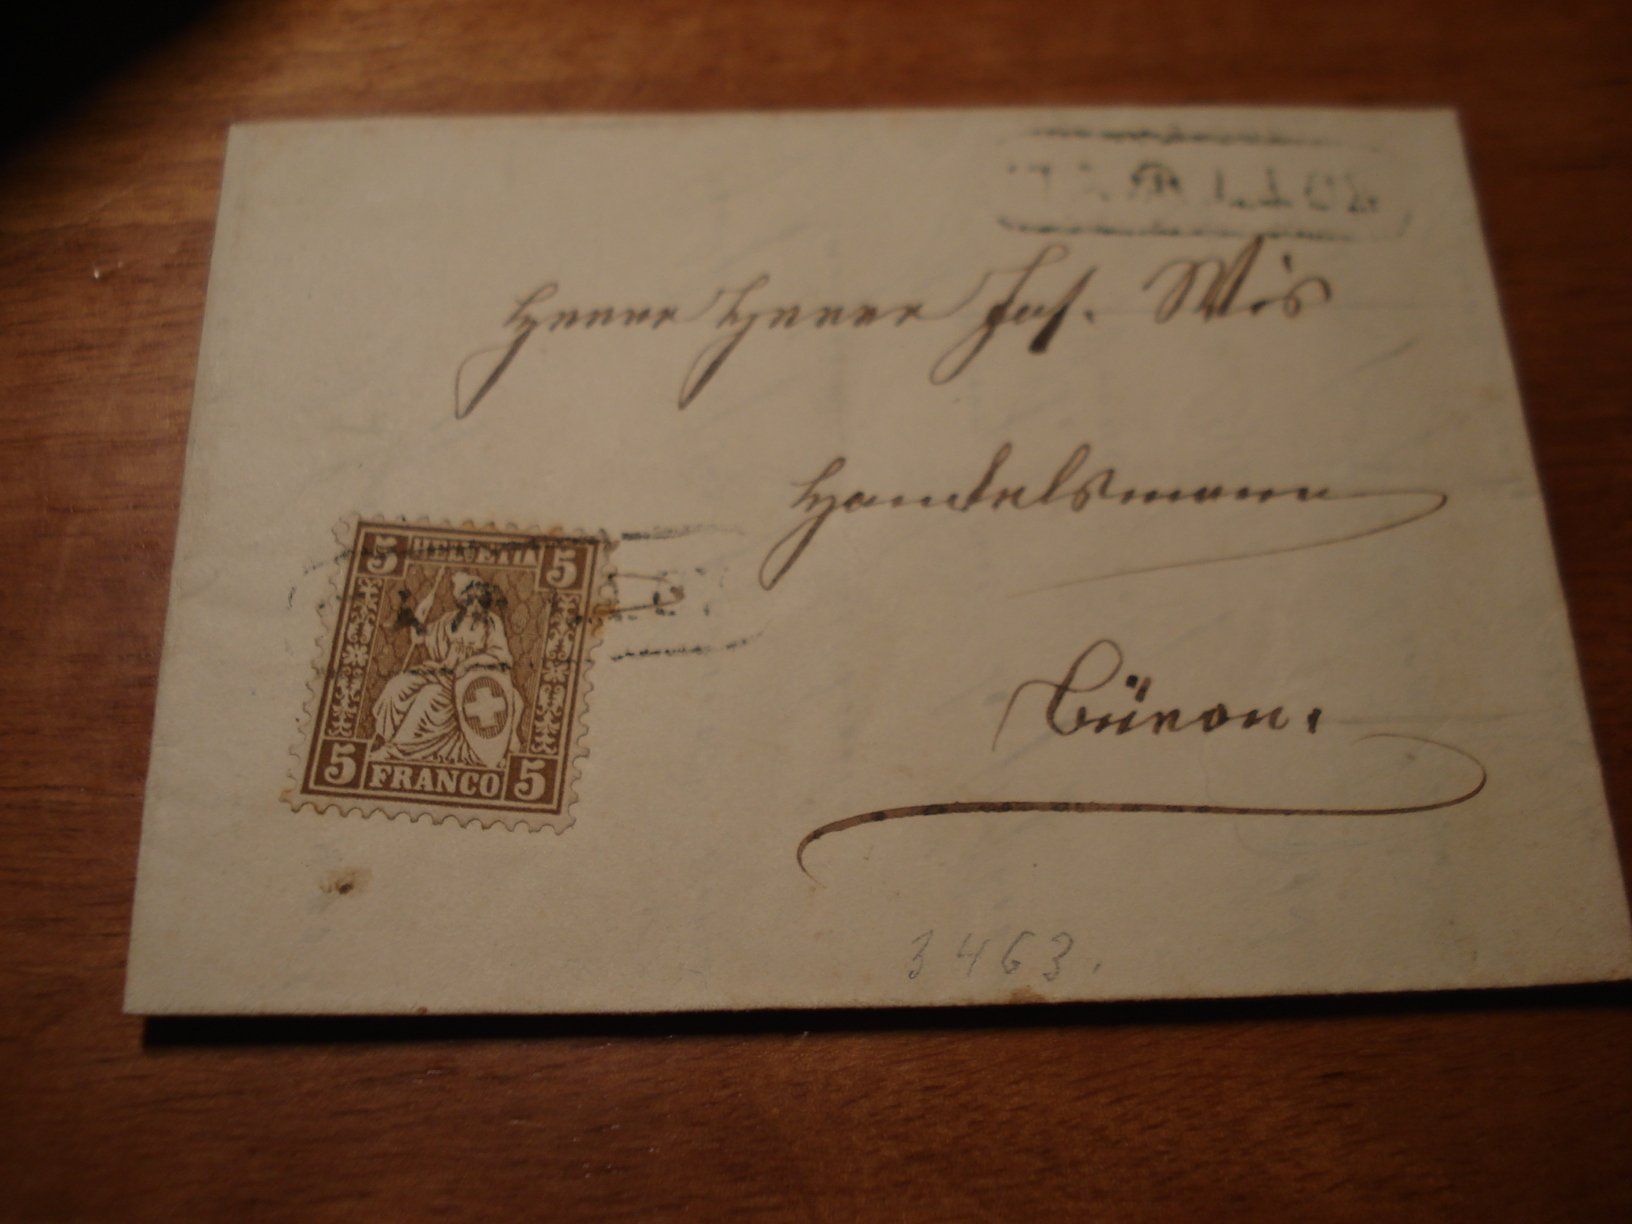 Herrn Herrn Jos. Wis
Handelsmann
Büron.
5 HELVETIA 5
5 FRANCO 5
3463.